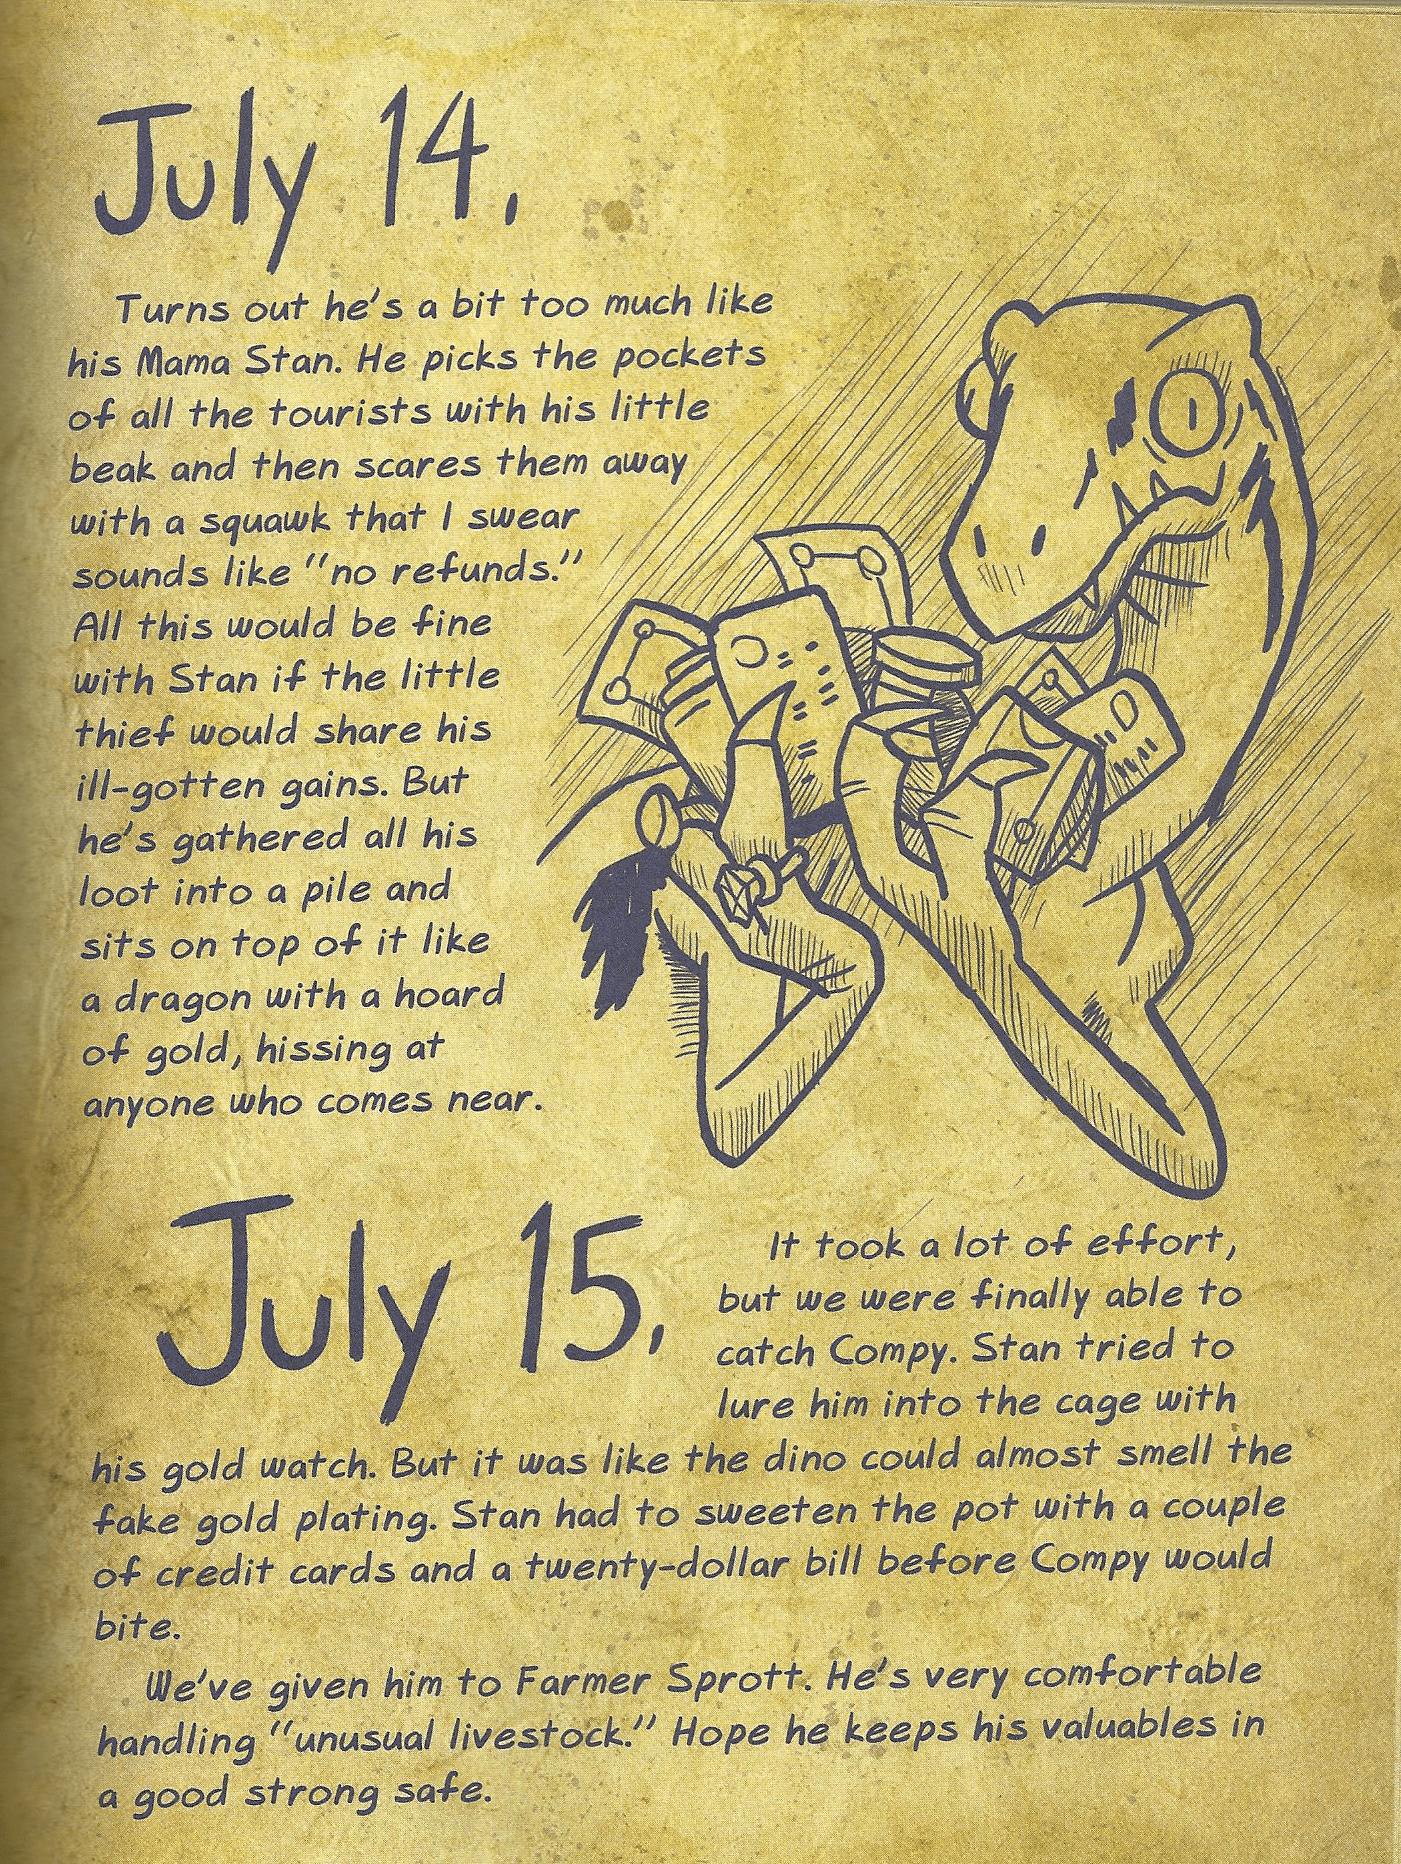 July 14,
Turns out he's a bit too much like
his Mama Stan. He picks the pockets
of all the tourists with his little
beak and then scares them away
with a squawk that I swear
sounds like "no refunds."
All this would be fine
with Stan if the little
thief would share his
ill-gotten gains. But
he's gathered all his
loot into a pile and
sits on top of it like
a dragon with a hoard
of gold, hissing at
anyone who comes near.
July 15,
It took a lot of effort,
but we were finally able to
catch Compy. Stan tried to
lure him into the cage with
his gold watch. But it was like the dino could almost smell the
fake gold plating. Stan had to sweeten the pot with a couple
of credit cards and a twenty-dollar bill before Compy would
bite.
We've given him to Farmer Sprott. He's very comfortable
handling "unusual livestock." Hope he keeps his valuables in
a good strong safe.